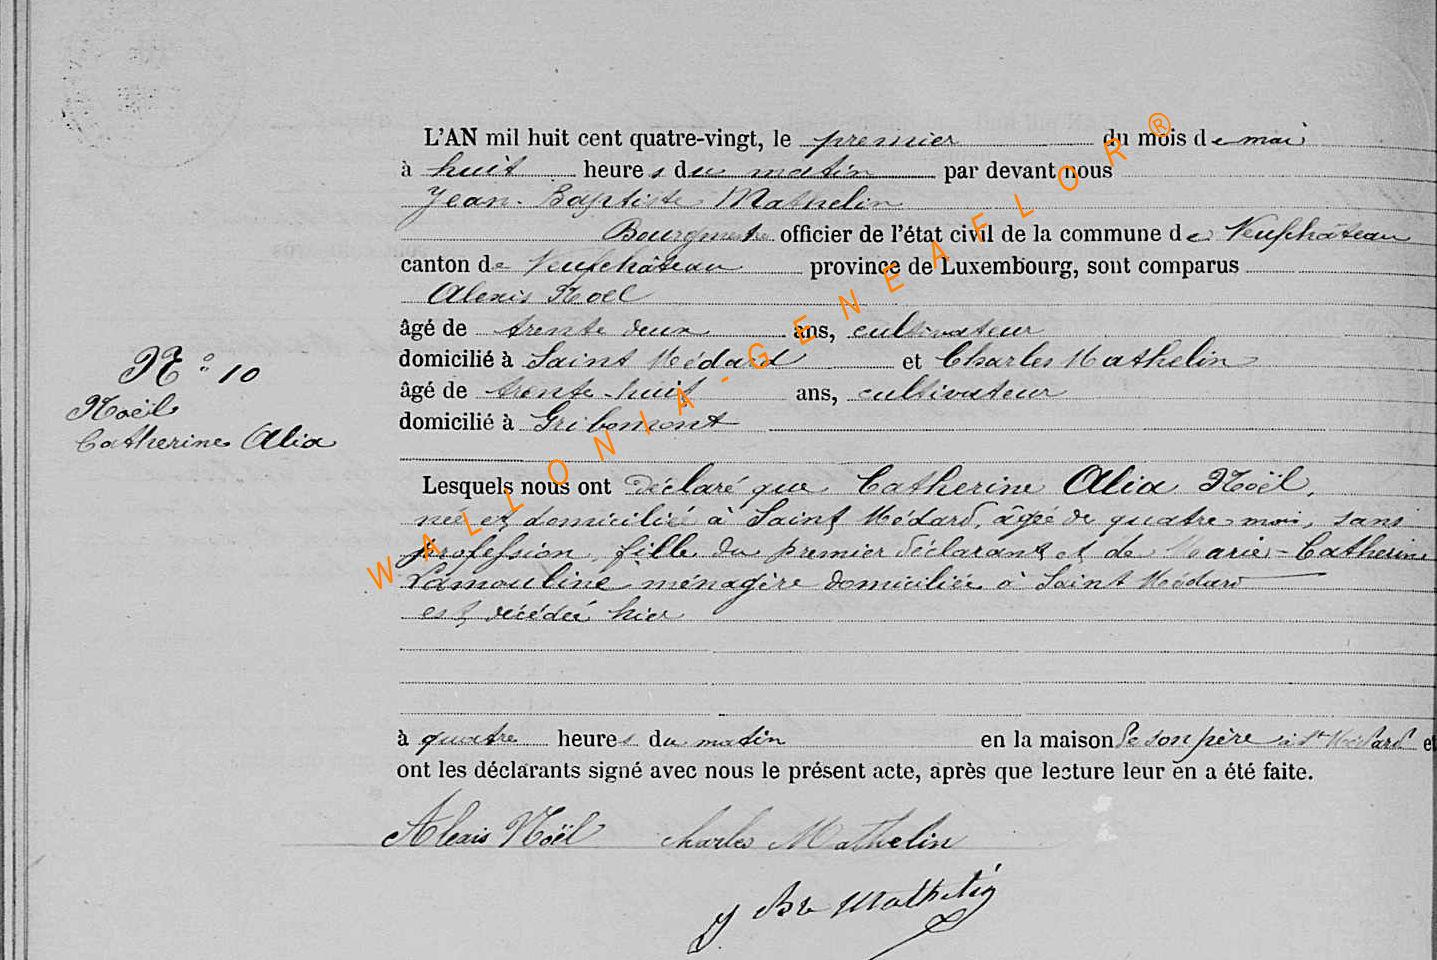 L'AN mil huit cent quatre-vingt, le premier du mois de mai
à huit heures du matin par devant nous
Jean-Baptiste Mathelin
Bourgmestre officier de l'état civil de la commune de Neufchâteau
canton de Neufchâteau province de Luxembourg, sont comparus
Alexis Noël
âgé de trente deux ans, cultivateur
domicilié à Saint Médard et Charles Mathelin
âgé de trente-huit ans, cultivateur
domicilié à Gribomont
N° 10
Noël
Catherine Alia
Lesquels nous ont déclaré que Catherine Alia Noël,
née et domiciliée à Saint Médard, âgée de quatre mois, sans
profession, fille du premier déclarant et de Marie-Catherine
Lamouline ménagère domiciliée à Saint Médard
est décédée hier
à quatre heures du matin en la maison de son père à St Médard et
ont les déclarants signé avec nous le présent acte, après que lecture leur en a été faite.
Alexis Noël Charles Mathelin
J Bte Mathelin
WALLONIA-GENEAFLOR®